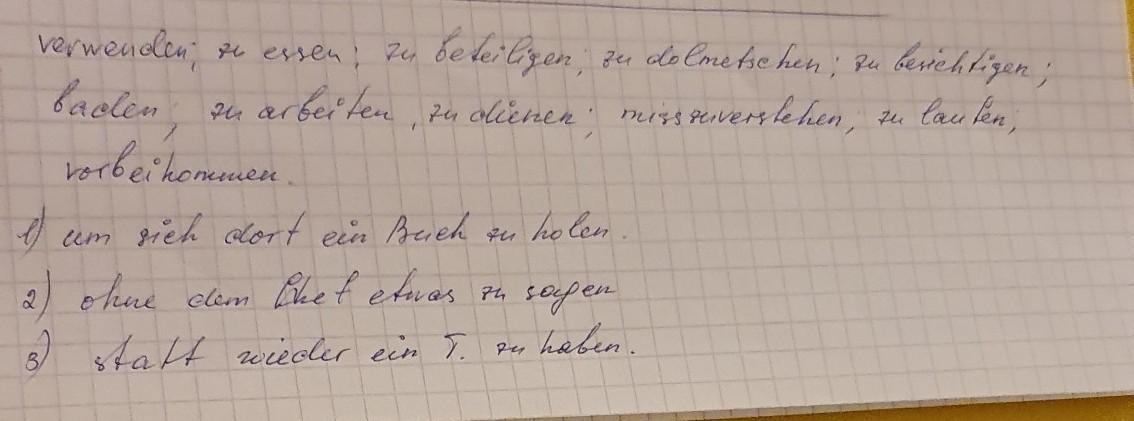 verwenden; zu essen; zu beteiligen; zu dolmetschen; zu besichtigen;
baden; zu arbeiten, zu dienen; misszuverstehen; zu laufen;
vorbeikommen.
1) um sich dort ein Buch zu holen.
2) ohne dem Chef etwas zu sagen
3) statt wieder ein T. zu haben.